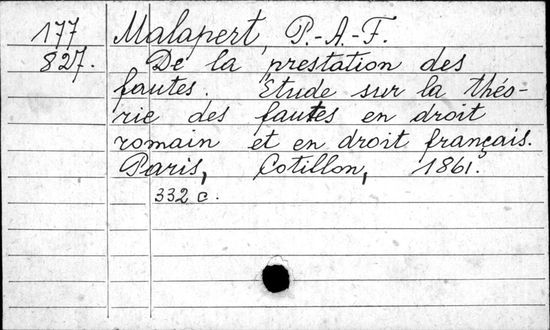 177 Malapert, P.-A.-F.
827. De la prestation des
fautes. Etude sur la théo-
rie des fautes en droit
romain et en droit français.
Paris, Cotillon, 1861.
332 c.